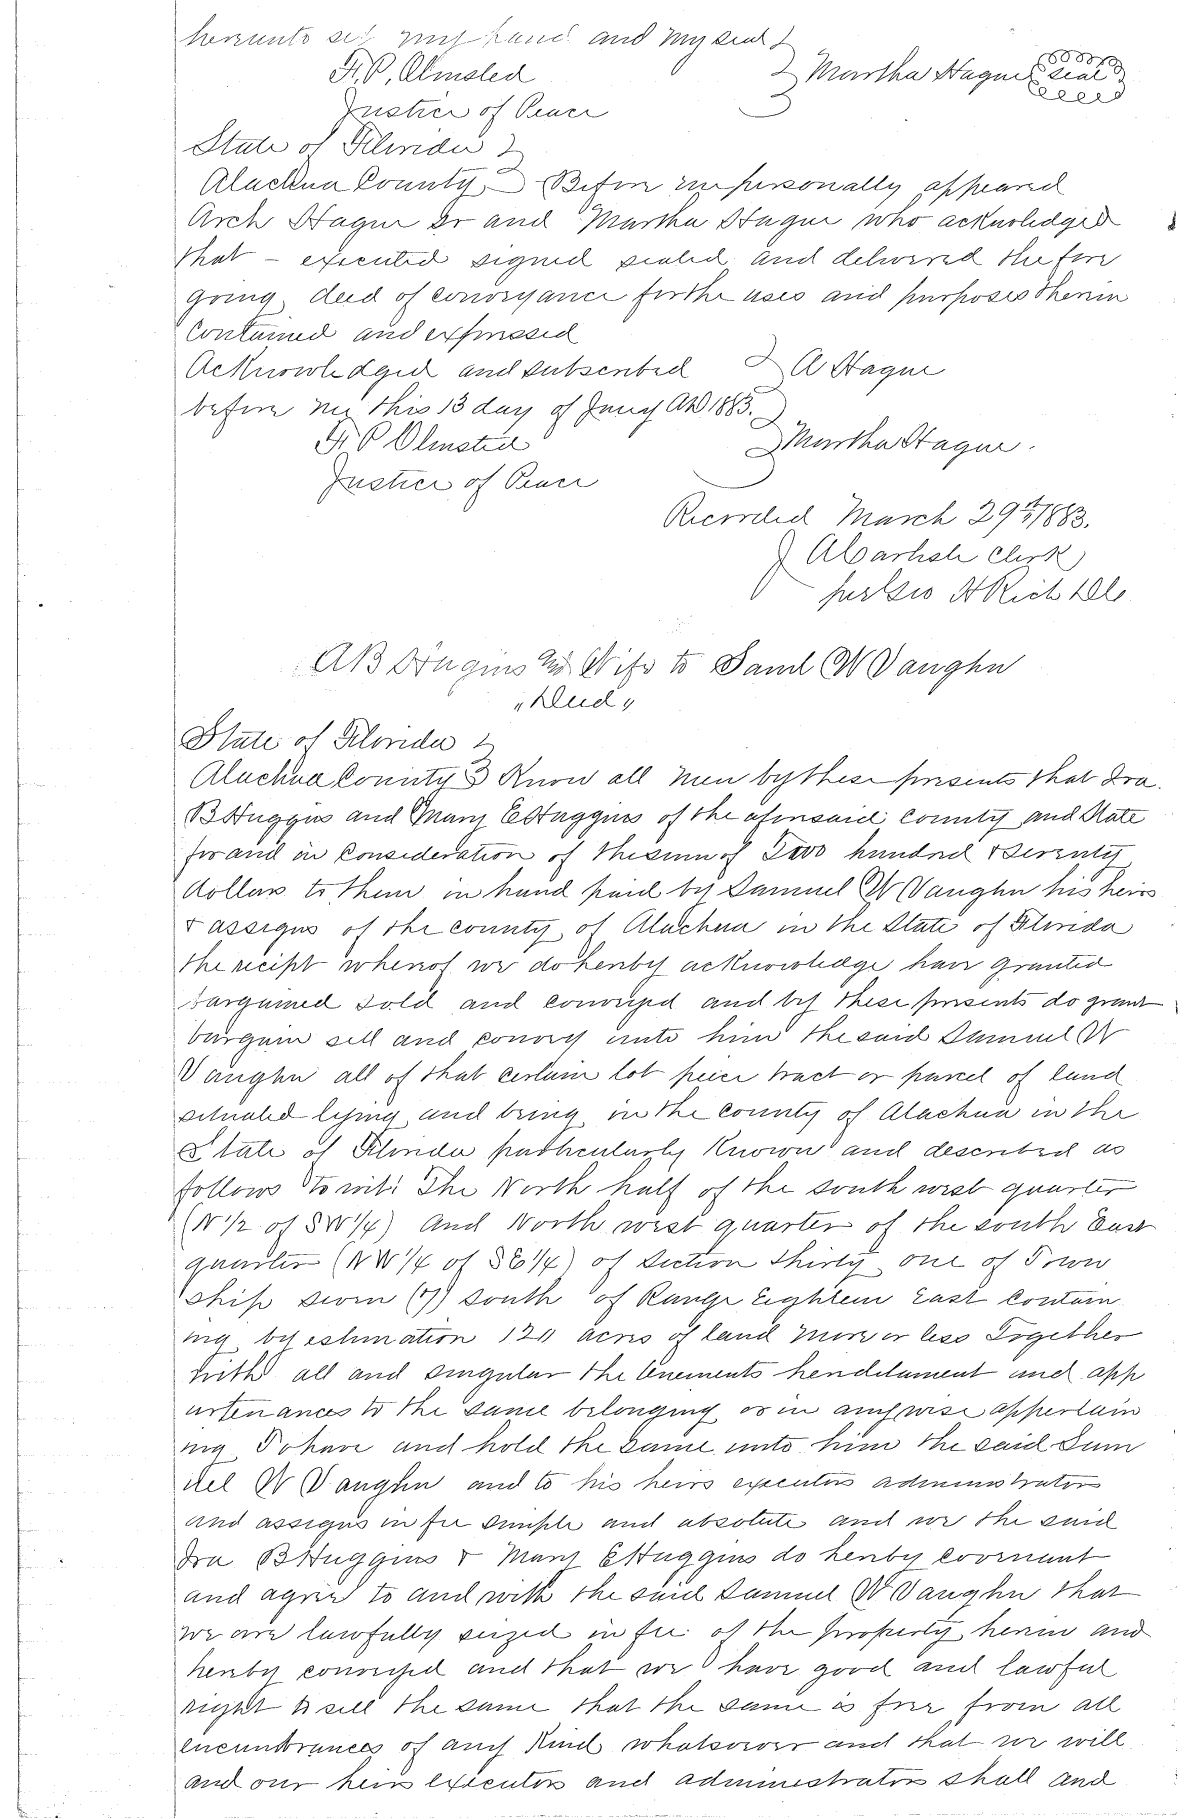 hereunto set my hand and my seal
F. P. Olmsted Martha Hague seal
Justice of Peace
State of Florida
Alachua County Before me personally appeared
Arch Hague Sr and Martha Hague who acknowledged
that - executed signed sealed and delivered the fore
going deed of conveyance for the uses and purposes therein
contained and expressed
Acknowledged and subscribed A Hague
before me this 13 day of Jany AD 1883.
F. P Olmsted Martha Hague.
Justice of Peace
Recorded March 29th 1883.
J A Carlisle Clerk
per Geo H Rich DC
AB Huggins and Wife to Saml W Vaughn
"Deed"
State of Florida
Alachua County Know all men by these presents that Ira
B Huggins and Mary E Huggins of the aforesaid County and State
for and in consideration of the sum of Two hundred & Seventy
dollars to them in hand paid by Samuel W Vaughn his heirs
& assigns of the county of Alachua in the State of Florida
the recipt whereof we do hereby acknowledge have granted
bargained sold and conveyed and by these presents do grant
bargain sell and convey unto him the said Samuel W
Vaughn all of that certain lot peice tract or parcel of land
situated lying and being in the county of Alachua in the
State of Florida particularly Known and described as
follows To wit: The North half of the south west quarter
(N 1/2 of SW 1/4) And North west quarter of the south East
quarter (NW 1/4 of SE 1/4) of Section thirty one of Town
ship seven (7) south of Range Eighteen East contain
ing by estimation 120 acres of land more or less Together
with all and singular the tenements hereditament and app
urtenances to the same belonging or in anywise appertain
ing To have and hold the same unto him the said Sam
uel W Vaughn and to his heirs executors administrators
and assigns in fee simple and absolute and we the said
Ira B Huggins & Mary E Huggins do hereby covenant
and agree to and with the said Samuel W Vaughn that
we are lawfully seized in fee of the property herein and
hereby conveyed and that we have good and lawful
right to sell the same that the same is free from all
encumbrances of any Kind whatsoever and that we will
and our heirs executors and administrators shall and